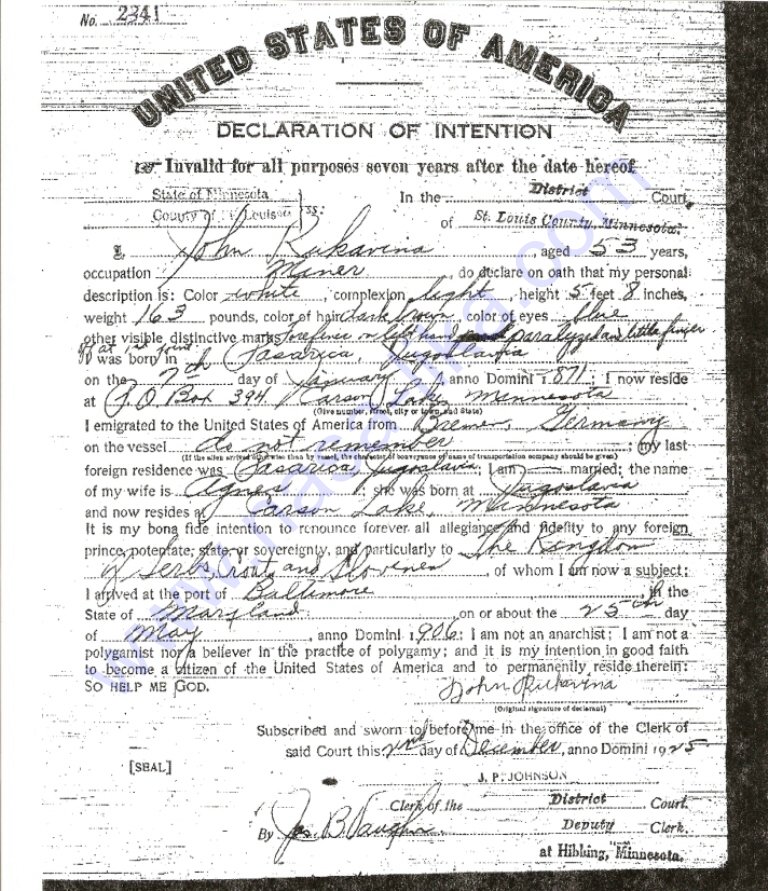 No. 2341
UNITED STATES OF AMERICA
DECLARATION OF INTENTION
☞ Invalid for all purposes seven years after the date hereof
State of Minnesota
County of St. Louis ss:
In the District Court
of St. Louis County, Minnesota.
I, John Rukavina, aged 53 years,
occupation Miner, do declare on oath that my personal
description is: Color white, complexion light, height 5 feet 8 inches,
weight 163 pounds, color of hair dark brown, color of eyes blue
other visible distinctive marks forefinger on left hand paralyzed and little finger
off at joint
I was born in Pasarica, Yugoslavia
on the 7th day of January, anno Domini 1871; I now reside
at P.O. Box 394 Carson Lake, Minnesota
(Give number, street, city or town, and State)
I emigrated to the United States of America from Bremen, Germany
on the vessel do not remember; my last
(If the alien arrived otherwise than by vessel, the character of conveyance or name of transportation company should be given)
foreign residence was Pasarica, Yugoslavia; I am married; the name
of my wife is Agnes; she was born at Yugoslavia
and now resides at Carson Lake, Minnesota
It is my bona fide intention to renounce forever all allegiance and fidelity to any foreign
prince, potentate, state, or sovereignty, and particularly to The Kingdom
of Serbs, Croats and Slovenes, of whom I am now a subject;
I arrived at the port of Baltimore, in the
State of Maryland on or about the 25th day
of May, anno Domini 1906; I am not an anarchist; I am not a
polygamist nor a believer in the practice of polygamy; and it is my intention in good faith
to become a citizen of the United States of America and to permanently reside therein:
SO HELP ME GOD.
John Rukavina
(Original signature of declarant)
Subscribed and sworn to before me in the office of the Clerk of
said Court this 2nd day of December, anno Domini 1925
[SEAL]
J. P. JOHNSON
Clerk of the District Court.
By Jas. B. Vaughn. Deputy Clerk.
at Hibbing, Minnesota.